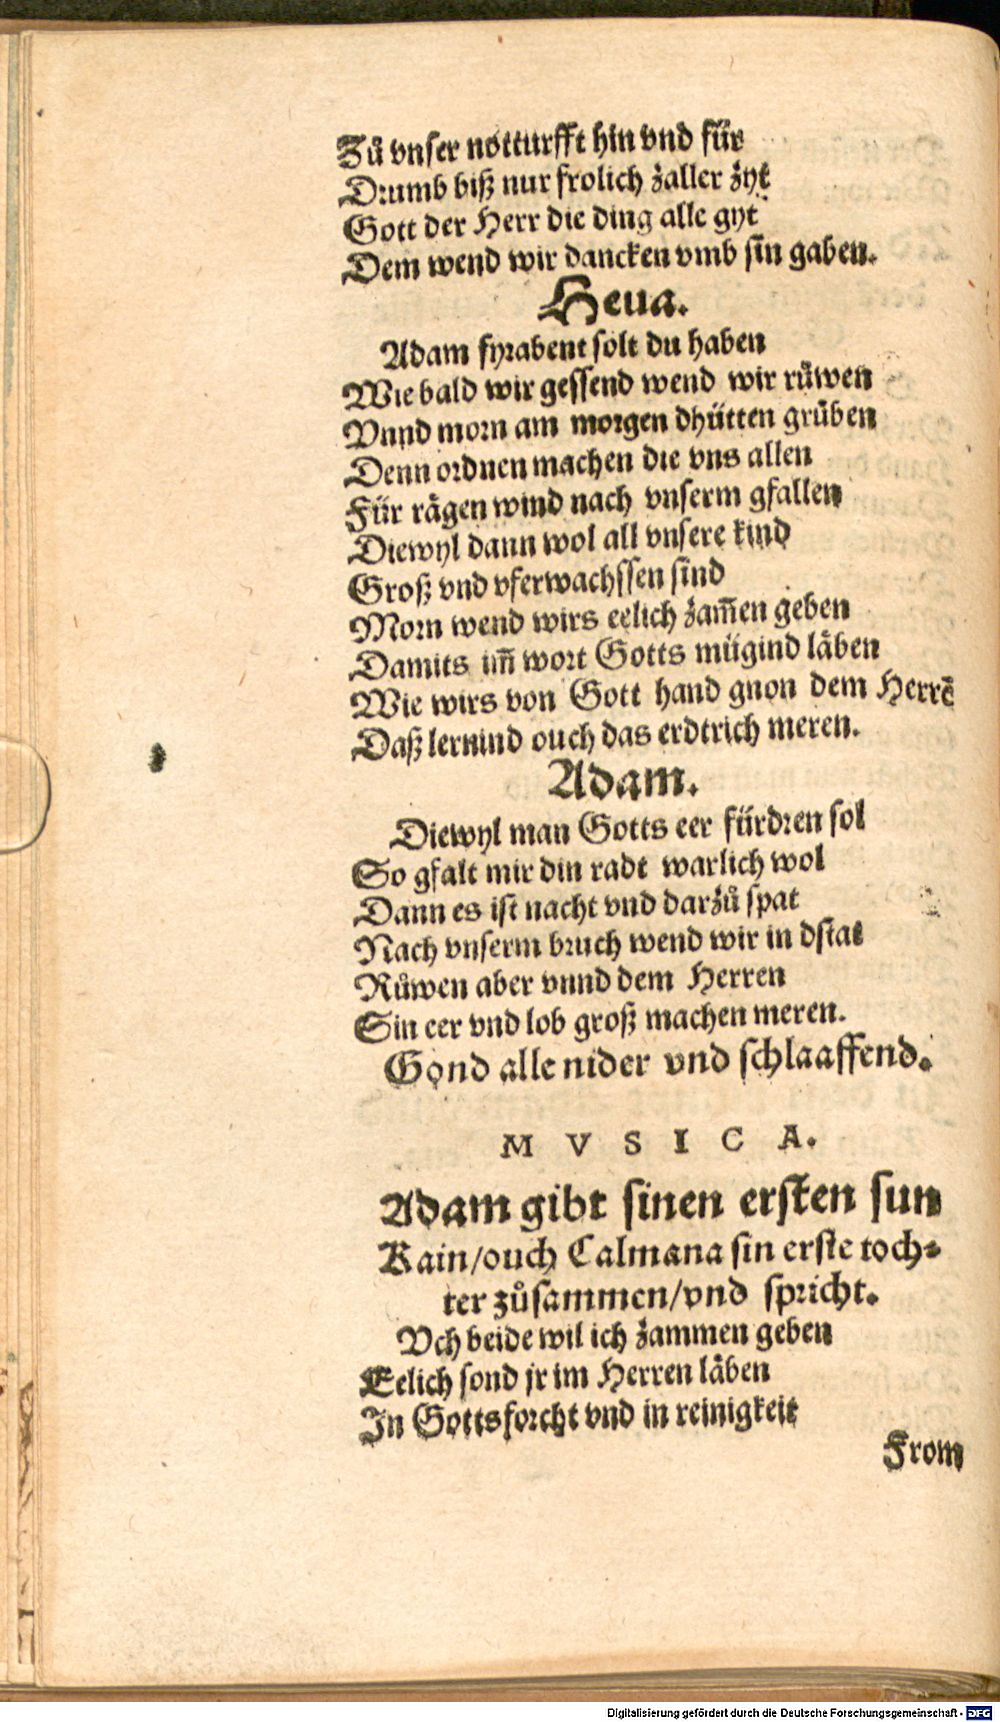 Zů vnser notturfft hin vnd für
Drumb biß nur frolich zaller zyt
Gott der Herr die ding alle gyt
Dem wend wir dancken vmb sin gaben.
Heua.
Adam fyrabent solt du haben
Wie bald wir gessend wend wir růwen
Vnnd morn am morgen dhütten grüben
Denn ordnen machen die vns allen
Für rägen wind nach vnserm gfallen
Diewyl dann wol all vnsere kind
Groß vnd vferwachssen sind
Morn wend wirs eelich zam̄en geben
Damits im̄ wort Gotts mügind läben
Wie wirs von Gott hand gnon dem Herrē
Daß lernind ouch das erdtrich meren.
Adam.
Diewyl man Gotts eer fürdren sol
So gfalt mir din radt warlich wol
Dann es ist nacht vnd darzů spat
Nach vnserm bruch wend wir in dstat
Růwen aber vnnd dem Herren
Sin eer vnd lob groß machen meren.
Gond alle nider vnd schlaaffend.
MVSICA.
Adam gibt sinen ersten sun
Kain/ouch Calmana sin erste toch⸗
ter zůsammen/vnd spricht.
Vch beide wil ich zammen geben
Eelich sond jr im Herren läben
In Gottsforcht vnd in reinigkeit
From
Digitalisierung gefördert durch die Deutsche Forschungsgemeinschaft - DFG